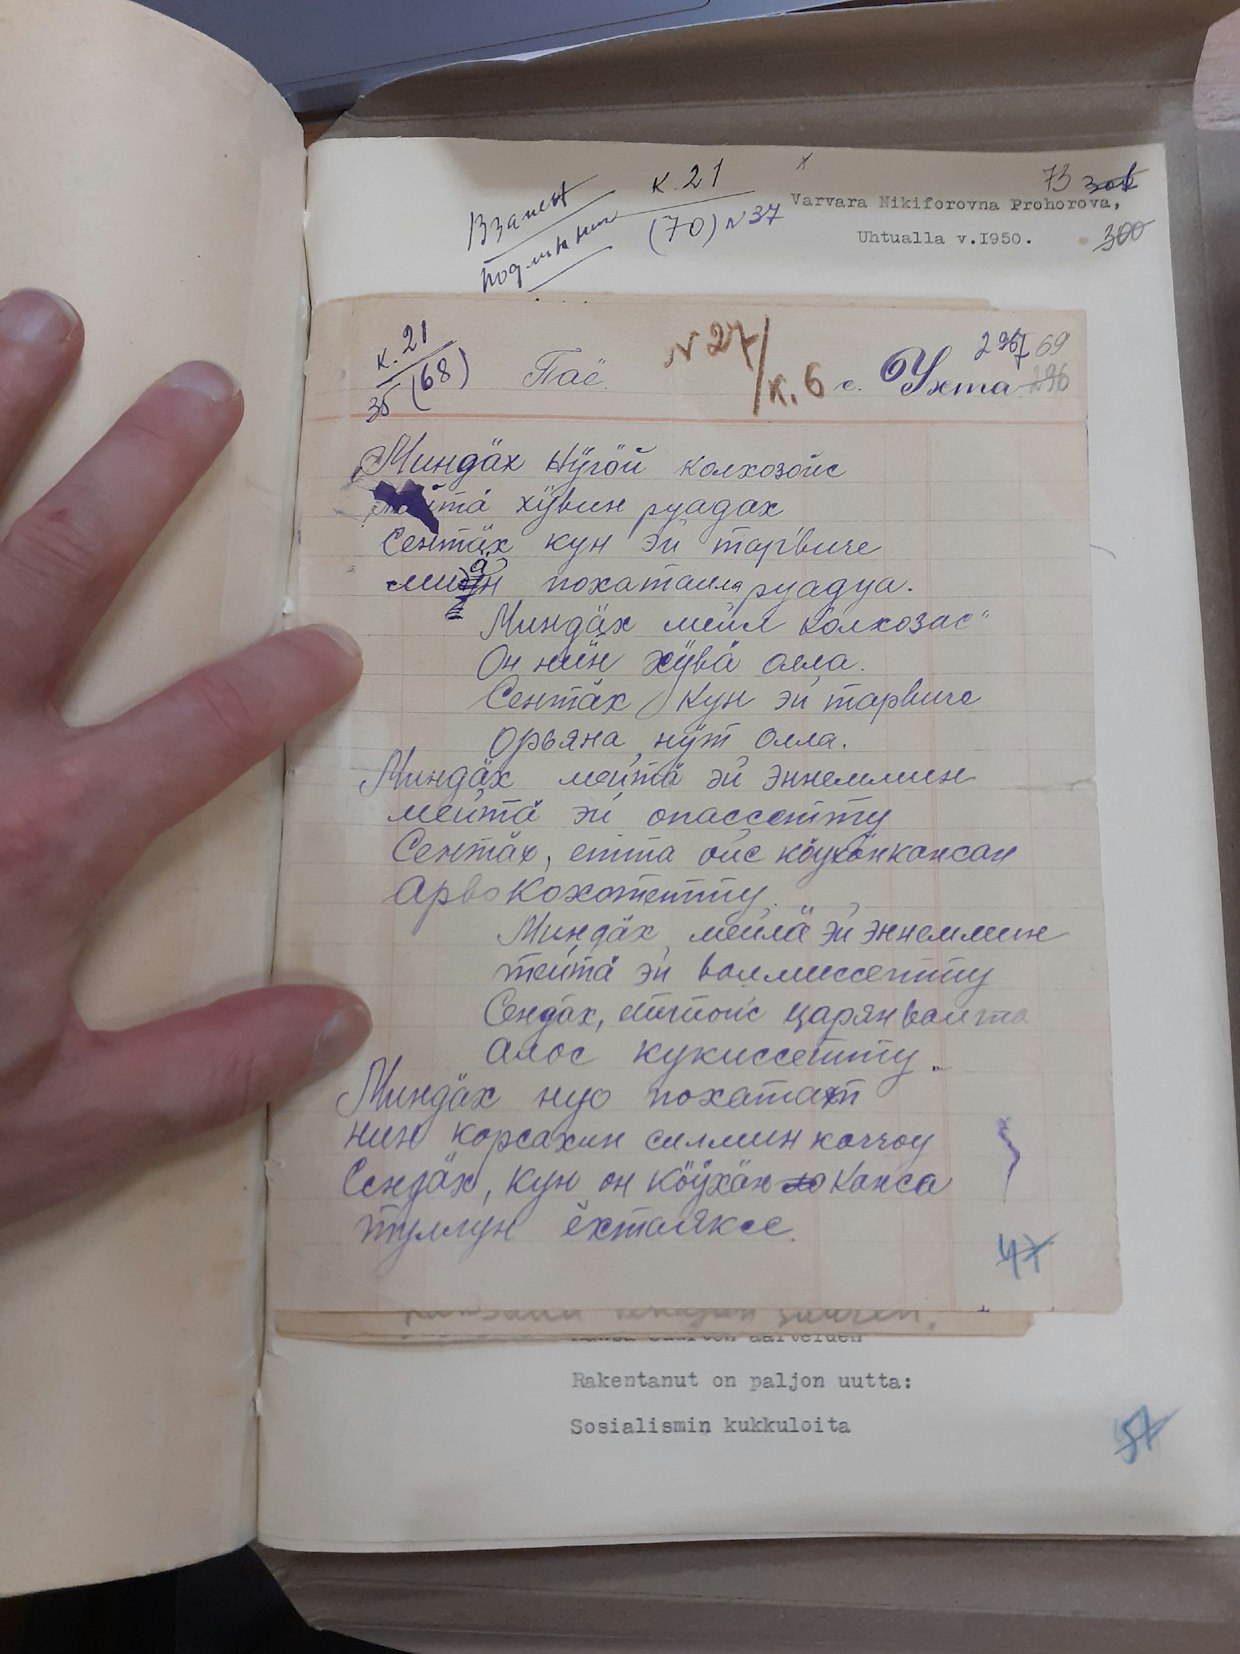 Взамен
подлинник
к. 21
(70) N 37
73 306
Varvara Nikiforovna Prohorova,
Uhtualla v.I950.
300
к. 21
35 (68)
Паё.
N 27/к. 6
с. Ухта
297 69
296
Миндӓх нӱгӧй колхозойс
хӱвин руадах
Сентӓх кун эй тарвиче
похатаила руадуа.
Миндӓх мейл колхозас
Он нийн хӱвӓ олла.
Сентӓх кун эй тарвиче
орьяна нӱт олла.
Миндӓх мейтӓ эй эннеммин
мейтӓ эй опассетту
Сентӓх, етта ойс кӧухӧнкансан
арвокохотетту.
Миндӓх мейлӓ эй эннеммин
тейтӓ эй валмиссетту
Сендӓх, еттойс царян валта
алос кукиссетту.
Миндӓх нуо похатат
нин корсахин силмин каччоу
Сендӓх, кун он кӧӱхӓн канса
туллун ёхтаяксе.
47
Rakentanut on paljon uutta:
Sosialismin kukkuloita
57